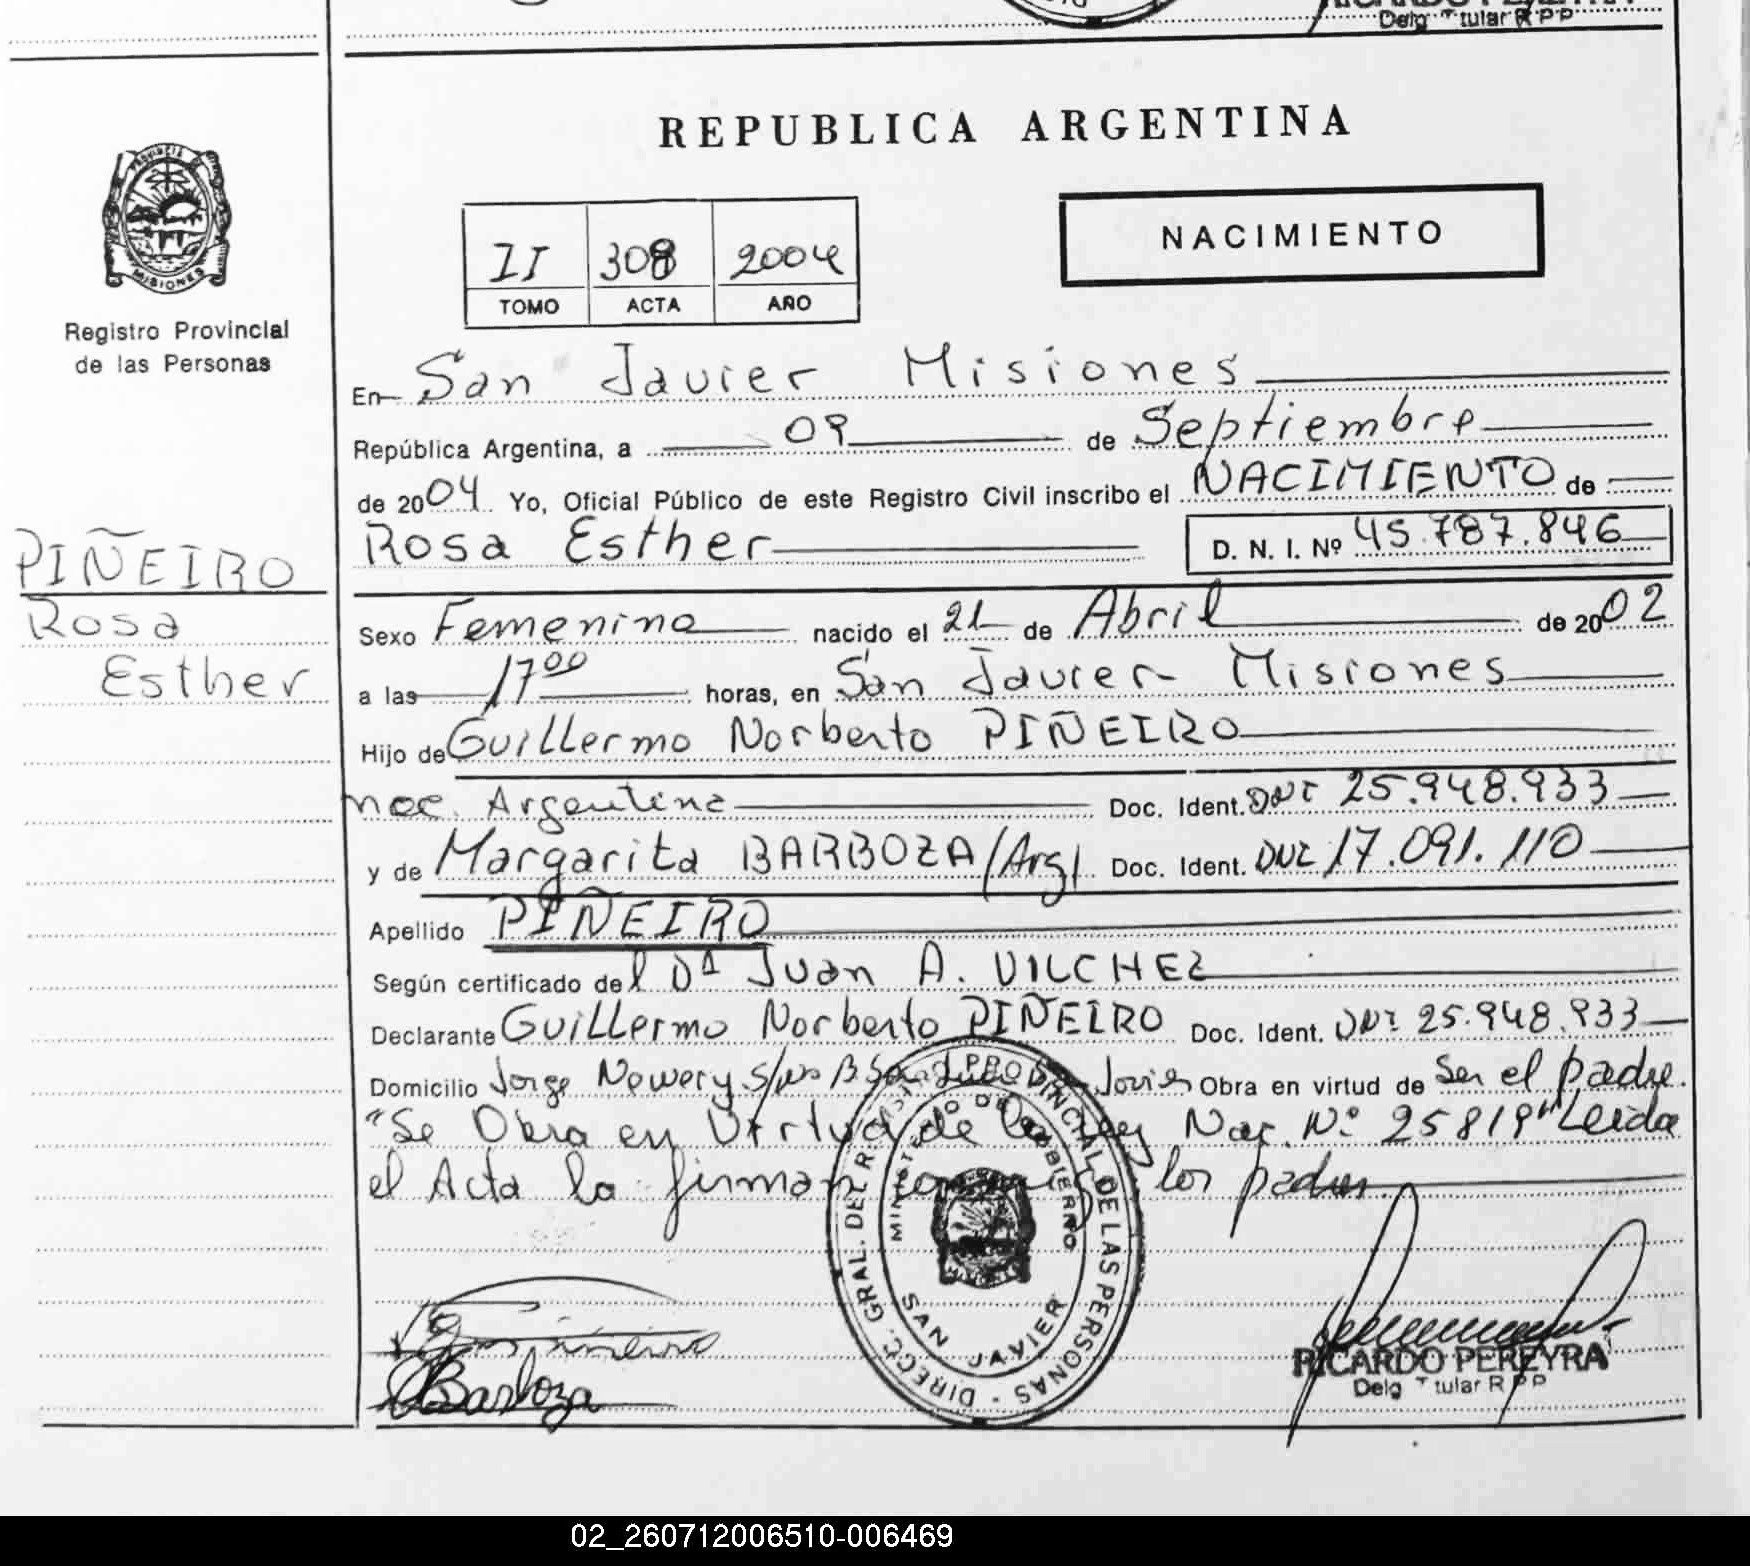 Delg Titular R P P
REPUBLICA ARGENTINA
PROVINCIA DE
MISIONES
Registro Provincial
de las Personas
NACIMIENTO
II 308 2004
TOMO ACTA AÑO
En San Javier Misiones
República Argentina, a 09 de Septiembre
de 2004 Yo, Oficial Público de este Registro Civil inscribo el NACIMIENTO de
Rosa Esther D. N. I. Nº 45.787.846
PIÑEIRO
Rosa
Esther
Sexo Femenino nacido el 21 de Abril de 2002
a las 17 00 horas, en San Javier Misiones
Hijo de Guillermo Norberto PIÑEIRO
nac. Argentina Doc. Ident. DNI 25.948.933
y de Margarita BARBOZA (Arg) Doc. Ident. DNI 17.091.110
Apellido PIÑEIRO
Según certificado del Dr Juan A. VILCHEZ
Declarante Guillermo Norberto PIÑEIRO Doc. Ident. DNI 25.948.933
Domicilio Jorge Nowery s/n B San Javier Obra en virtud de Ser el padre.
"Se Obra en Virtud de la Ley Nac. Nº 25819" Leida
el Acta la firman conmigo los padres.
DIRECC. GRAL. DEL R. PROVINCIAL DE LAS PERSONAS
MINISTERIO DE GOBIERNO
SAN JAVIER
Piñeiro
Barboza
RICARDO PEREYRA
Delg Titular R P P
02_260712006510-006469